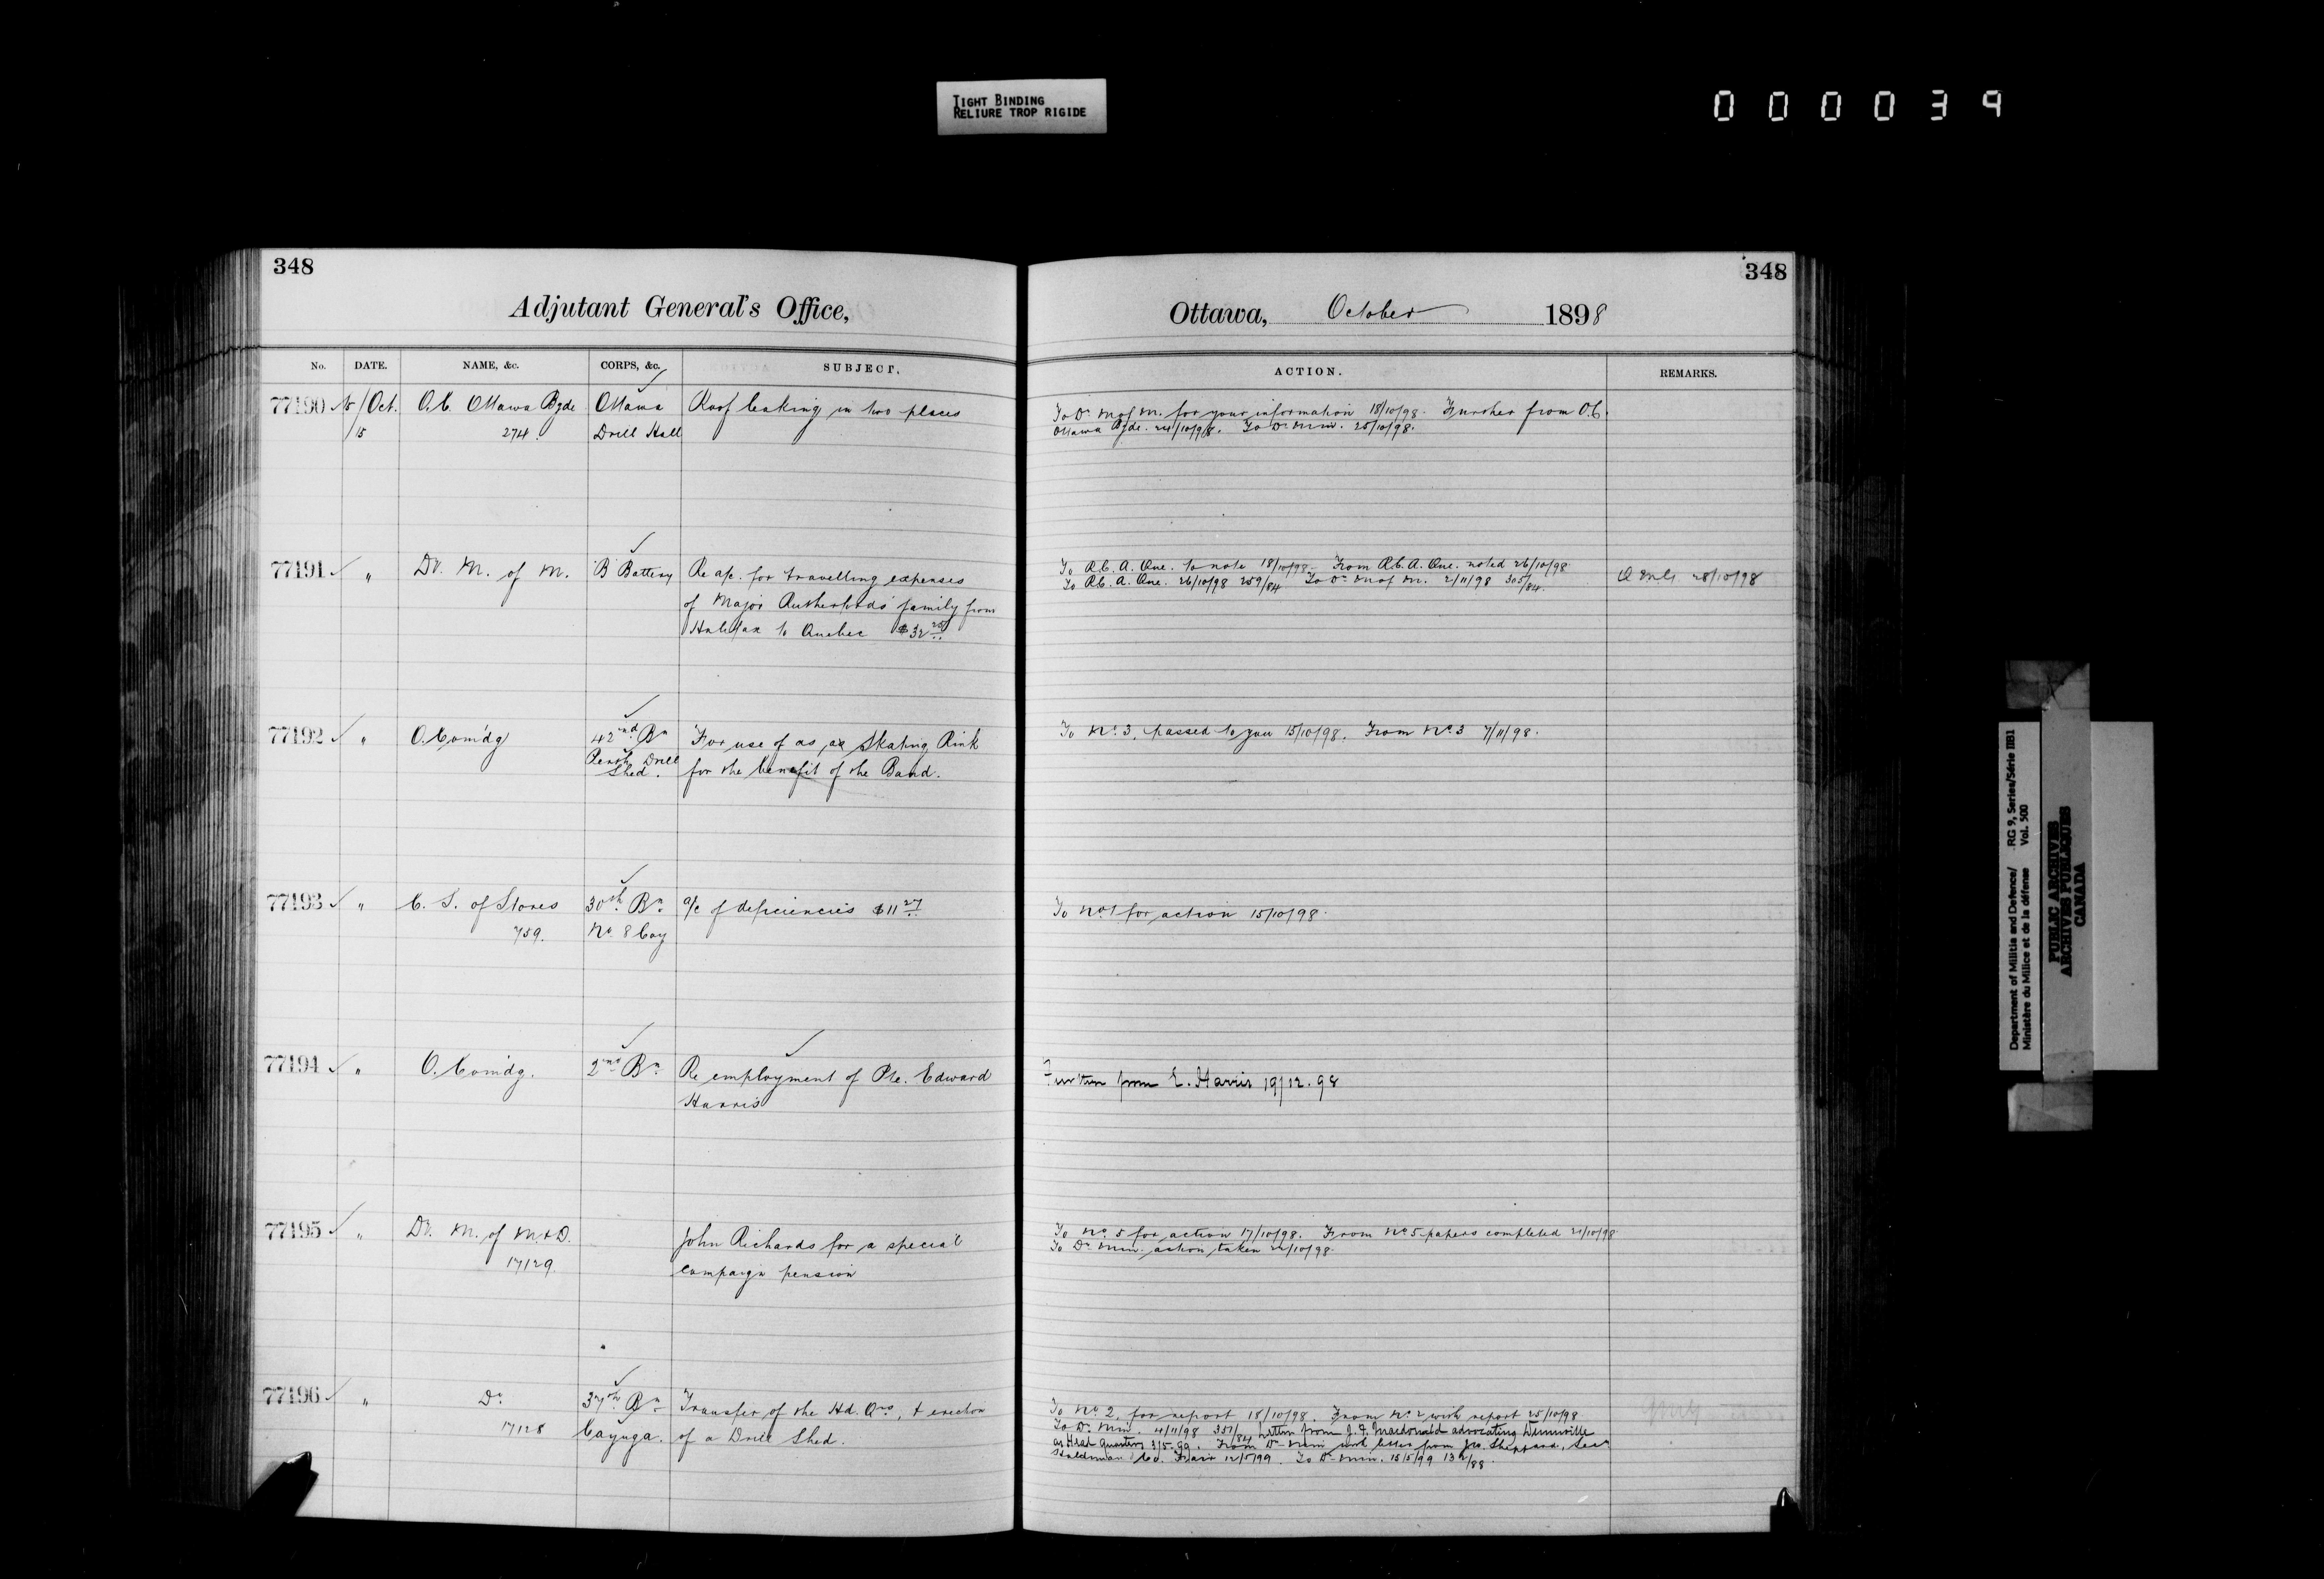 TIGHT BINDING
RELIURE TROP RIGIDE
000039
348
Adjutant General's Office,
No. DATE. NAME, &c. CORPS, &c. SUBJECT.
77190 15/Oct. O.C. Ottawa Bgde Ottawa Roof leaking in two places
/15 274. Drill Hall
77191 " Dy. M. of M. B Battery Re a/c. for travelling expenses
of Major Rutherfords family from
Halifax to Quebec $32.25
77192 " O. Comdg 42nd Bn For use of as a Skating Rink
Perth Drill
Shed. for the benefit of the Band.
77193 " C. S. of Stores 30th Bn. a/c of deficiencies $11 27
759. No. 8 Coy
77194 " O. Comdg. 2nd Bn. Re employment of Pte. Edward
Harris
77195 " Dy. M. of M & D. John Richards for a special
17129. campaign pension
77196 " Do 37th Bn Transfer of the Hd. Qrs, & erection
17128 Cayuga. of a Drill Shed.
348
Ottawa, October 1898
ACTION. REMARKS.
To Dy M of M. for your information 18/10/98. Further from O.C.
Ottawa Bgde. 24/10/98. To Dy Min. 25/10/98.
To R.C.A. Que. to note 18/10/98. From R.C.A. Que. noted 26/10/98
To R.C.A. Que. 26/10/98 259/84 To Dy M of M. 2/11/98 305/84. 28/10/98
To No. 3, passed to you 15/10/98. From No. 3 7/11/98.
To No 1 for action 15/10/98.
Further from E. Harris 19/12.98
To No. 5 for action 17/10/98. From No. 5 papers completed 21/10/98
To Dy Min. action taken 22/10/98.
To No. 2, for report 18/10/98. From No. 2 with report 25/10/98
To Dy Min. 4/11/98 351/84 Letter from J. F. Macdonald advocating Dunnville
as Head Quarters 3/5.99. From Dy Min with letter from Jno. Sheppard, Secy
Haldimand Co. Fair 12/5/99. To Dy Min. 15/5/99
Department of Militia and Defence/ RG 9, Series/Série IIB1
Ministère du Milice et de la défense Vol. 500
PUBLIC ARCHIVES
ARCHIVES PUBLIQUES
CANADA